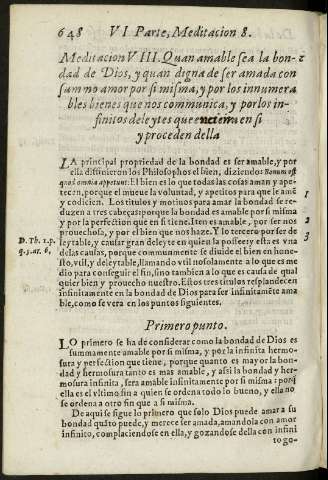 648 VI Parte, Meditacion 8.
Meditacion VIII. Quan amable sea la bon-
dad de Dios, y quan digna de ser amada con
summo amor por si misma, y por los innumera
bles bienes que nos communica, y por los in-
finitos deleytes que encierra en si
y proceden della
LA principal propriedad de la bondad es ser amable, y por
ella diffinieron los Philosophos el bien, diziendo: Bonum est
quod omnia appetunt. El bien es lo que todas las cosas aman y ape-
tecen, porque el mueue la voluntad, y apetitos para que le amē
y codicien. Los titulos y motiuos para amar la bondad se re-
1
duzen a tres cabeças; porque la bondad es amable por si misma
y por la perfection que en si tiene. Iten es amable, por ser nos
2
prouechosa, y por el bien que nos haze. Y lo tercero por ser de
D. Th. 1. p.
leytable, y causar gran deleyte en quien la possee: y esta es vna
3
q. 5. ar. 6,
delas causas, porque communmente se diuide el bien en hones-
to, vtil, y deleytable, llamando vtil no solamente a lo que es me
dio para conseguir el fin, sino tambien a lo que es causa de qual
quier bien y prouecho nuestro. Estos tres titulos resplandecen
infinitamente en la bondad de Dios para ser infinitamēte ama
ble, como se vera en los puntos siguientes.
Primero punto.
LO primero se ha de considerar como la bondad de Dios es
summamente amable por si misma, y por la infinita hermo-
sura y perfection que tiene, porque quanto es mayor la bon-
dad y hermosura tanto es mas amable, y assi la bondad y her-
mosura infinita, sera amable infinitamente por si misma: porq̄
ella es el vltimo fin a quien se ordena todo lo bueno, y ella no
se ordena a otro fin que a si misma.
De aqui se sigue lo primero que solo Dios puede amar a su
bondad quāto puede, y merece ser amada, amandola con amor
infinito, complaciendose en ella, y gozandose della con infini
to go-